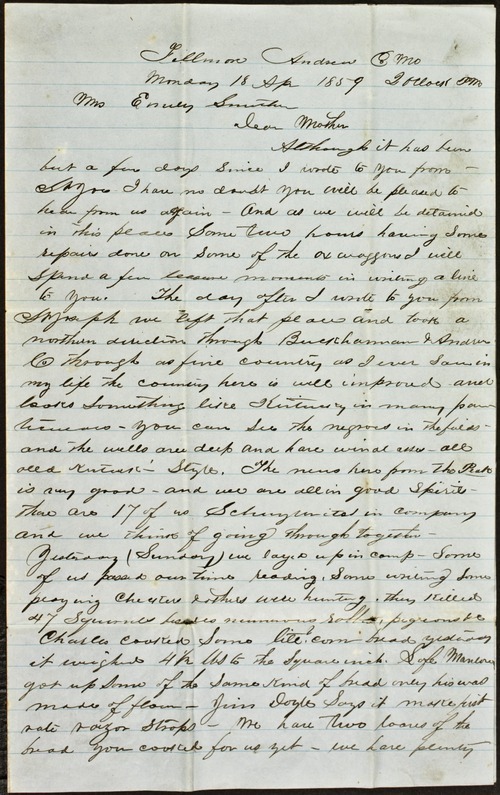 Fillmore Andrew Co Mo
Monday 18 Ap 1859 2 oclock PM
Mrs Smither
Dear Mother
Although it has been
but a few days since I wrote to you from
St Joe I have no doubt you will be pleased to
hear from us again - And as we will be detained
in this place some two hours having some
repairs done on some of the ox waggons I will
spend a few leasure moments in writing a line
to you. The day after I wrote to you from
St Joseph we left that place and took a
northern direction through Buckhannan & Andrew
Co through as fine country as I ever saw in
my life the country here is well improved and
looks something like Kentucky in many par
ticulars - you can see the negroes in the fields -
and the wells are deep and have windlasses - all
old Kentuck Style. The news here from the Peak
is very good - and we are all in good Spirits
thare are 17 of us Schuylerites in company
and we think of going through together -
Yesterday (Sunday) we layed up in camp - Some
of us passed our time reading, Some writing Some
playing Checkers & others were hunting. they killed
47 Squirrels besides numerous pigeons &c
Charles cooked Some lite corn bread yesterday
it weighed 4½ lbs to the Square inch.
got up some of the same kind of bread only his was
made of flour - Jim Doyle Says it makes first
rate razor Strops - We have two loaves of the
bread you cooked for us yet - we have plenty